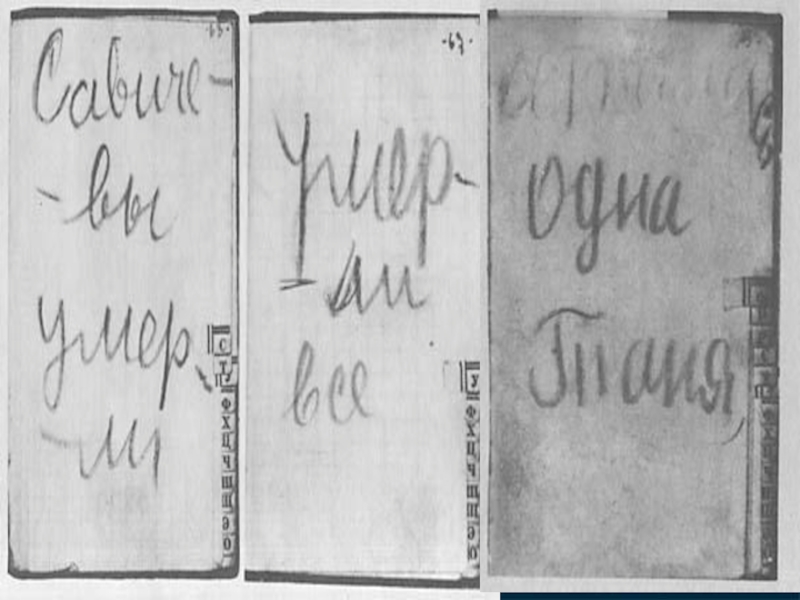 Савиче-
-вы
умер-
-ли
С
Т
У
Ф
Х
Ц
Ч
Ш
Щ
Э
Ю
умер-
-ли
все
У
Ф
Х
Ц
Ч
Ш
Щ
Э
Ю
одна
Таня